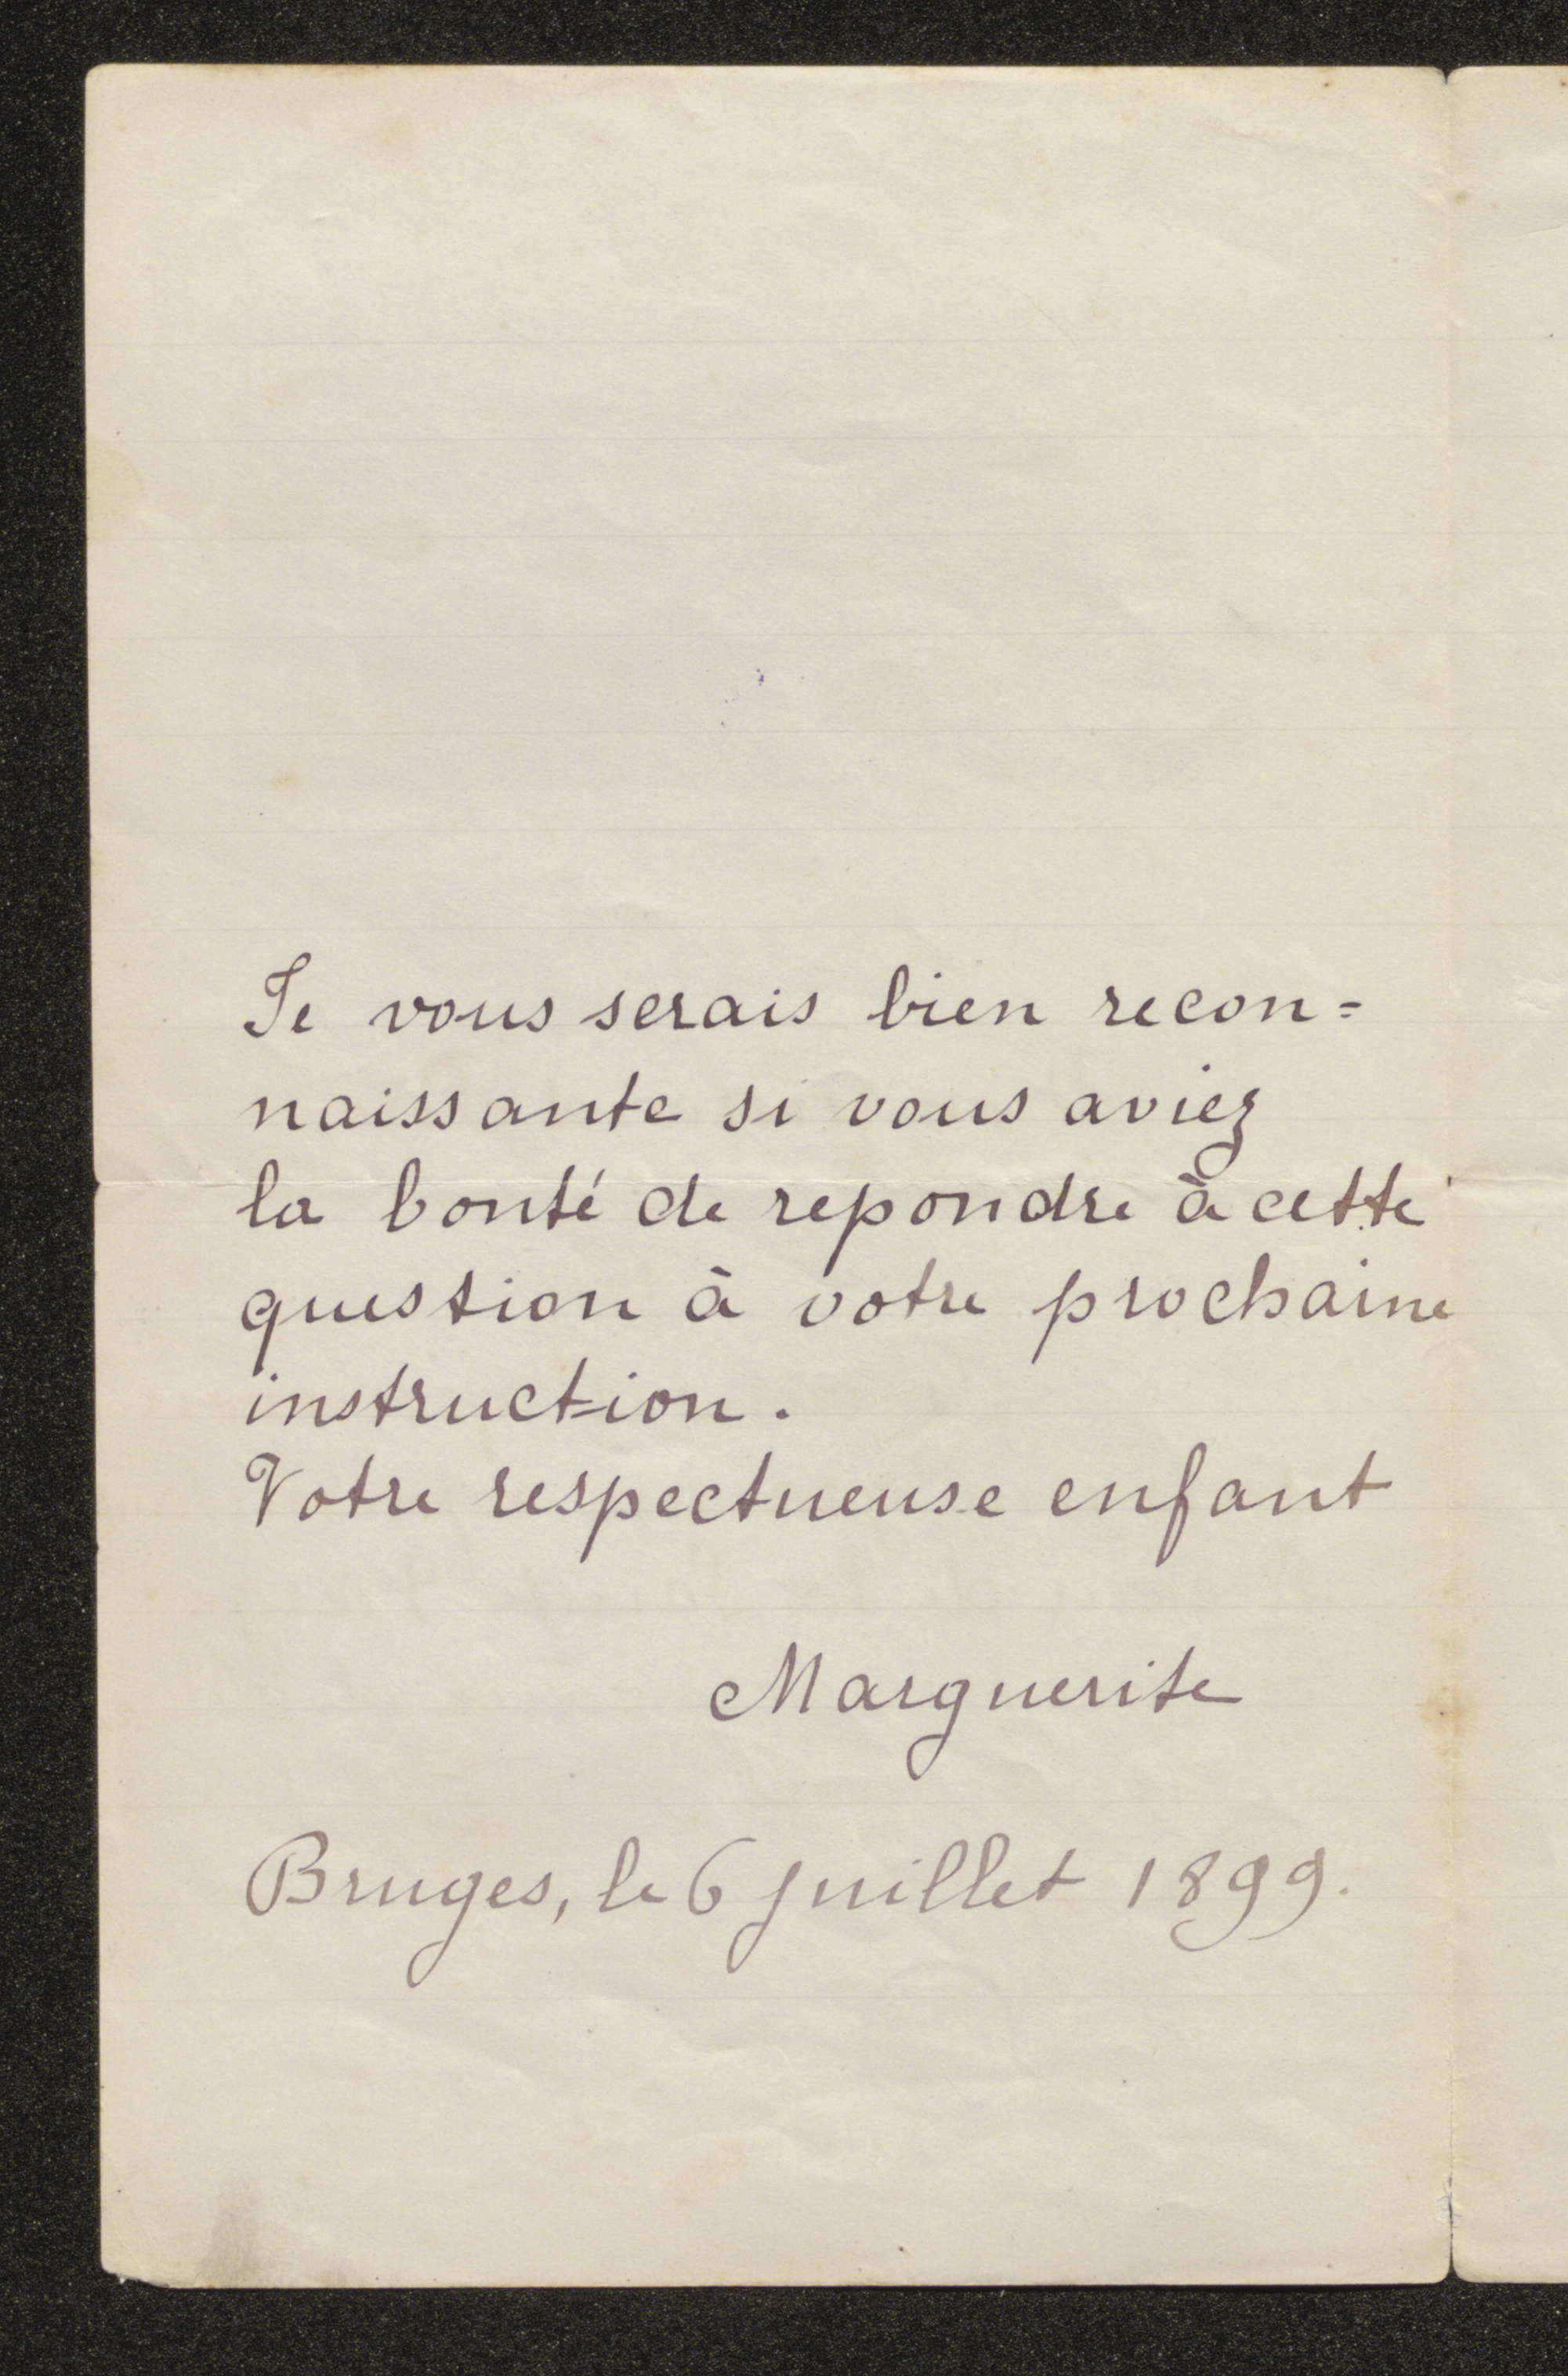 Je vous serais bien recon=
naissante si vous aviez
la bonté de repondre à cette
question à votre prochaine
instruction.
Votre respectueuse enfant
Marguerite
Bruges, le 6 juillet 1899.